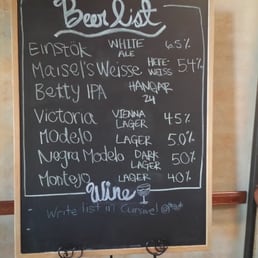 Beer list
Einstök WHITE ALE 6.5%
Maisel's Weisse HEFE-WEISS 5.4%
Betty IPA HANGAR 24
Victoria VIENNA LAGER 4.5%
Modelo LAGER 5.0%
Negra Modelo DARK LAGER 5.0%
Montejo LAGER 4.0%
Wine
Write list in Cursive!